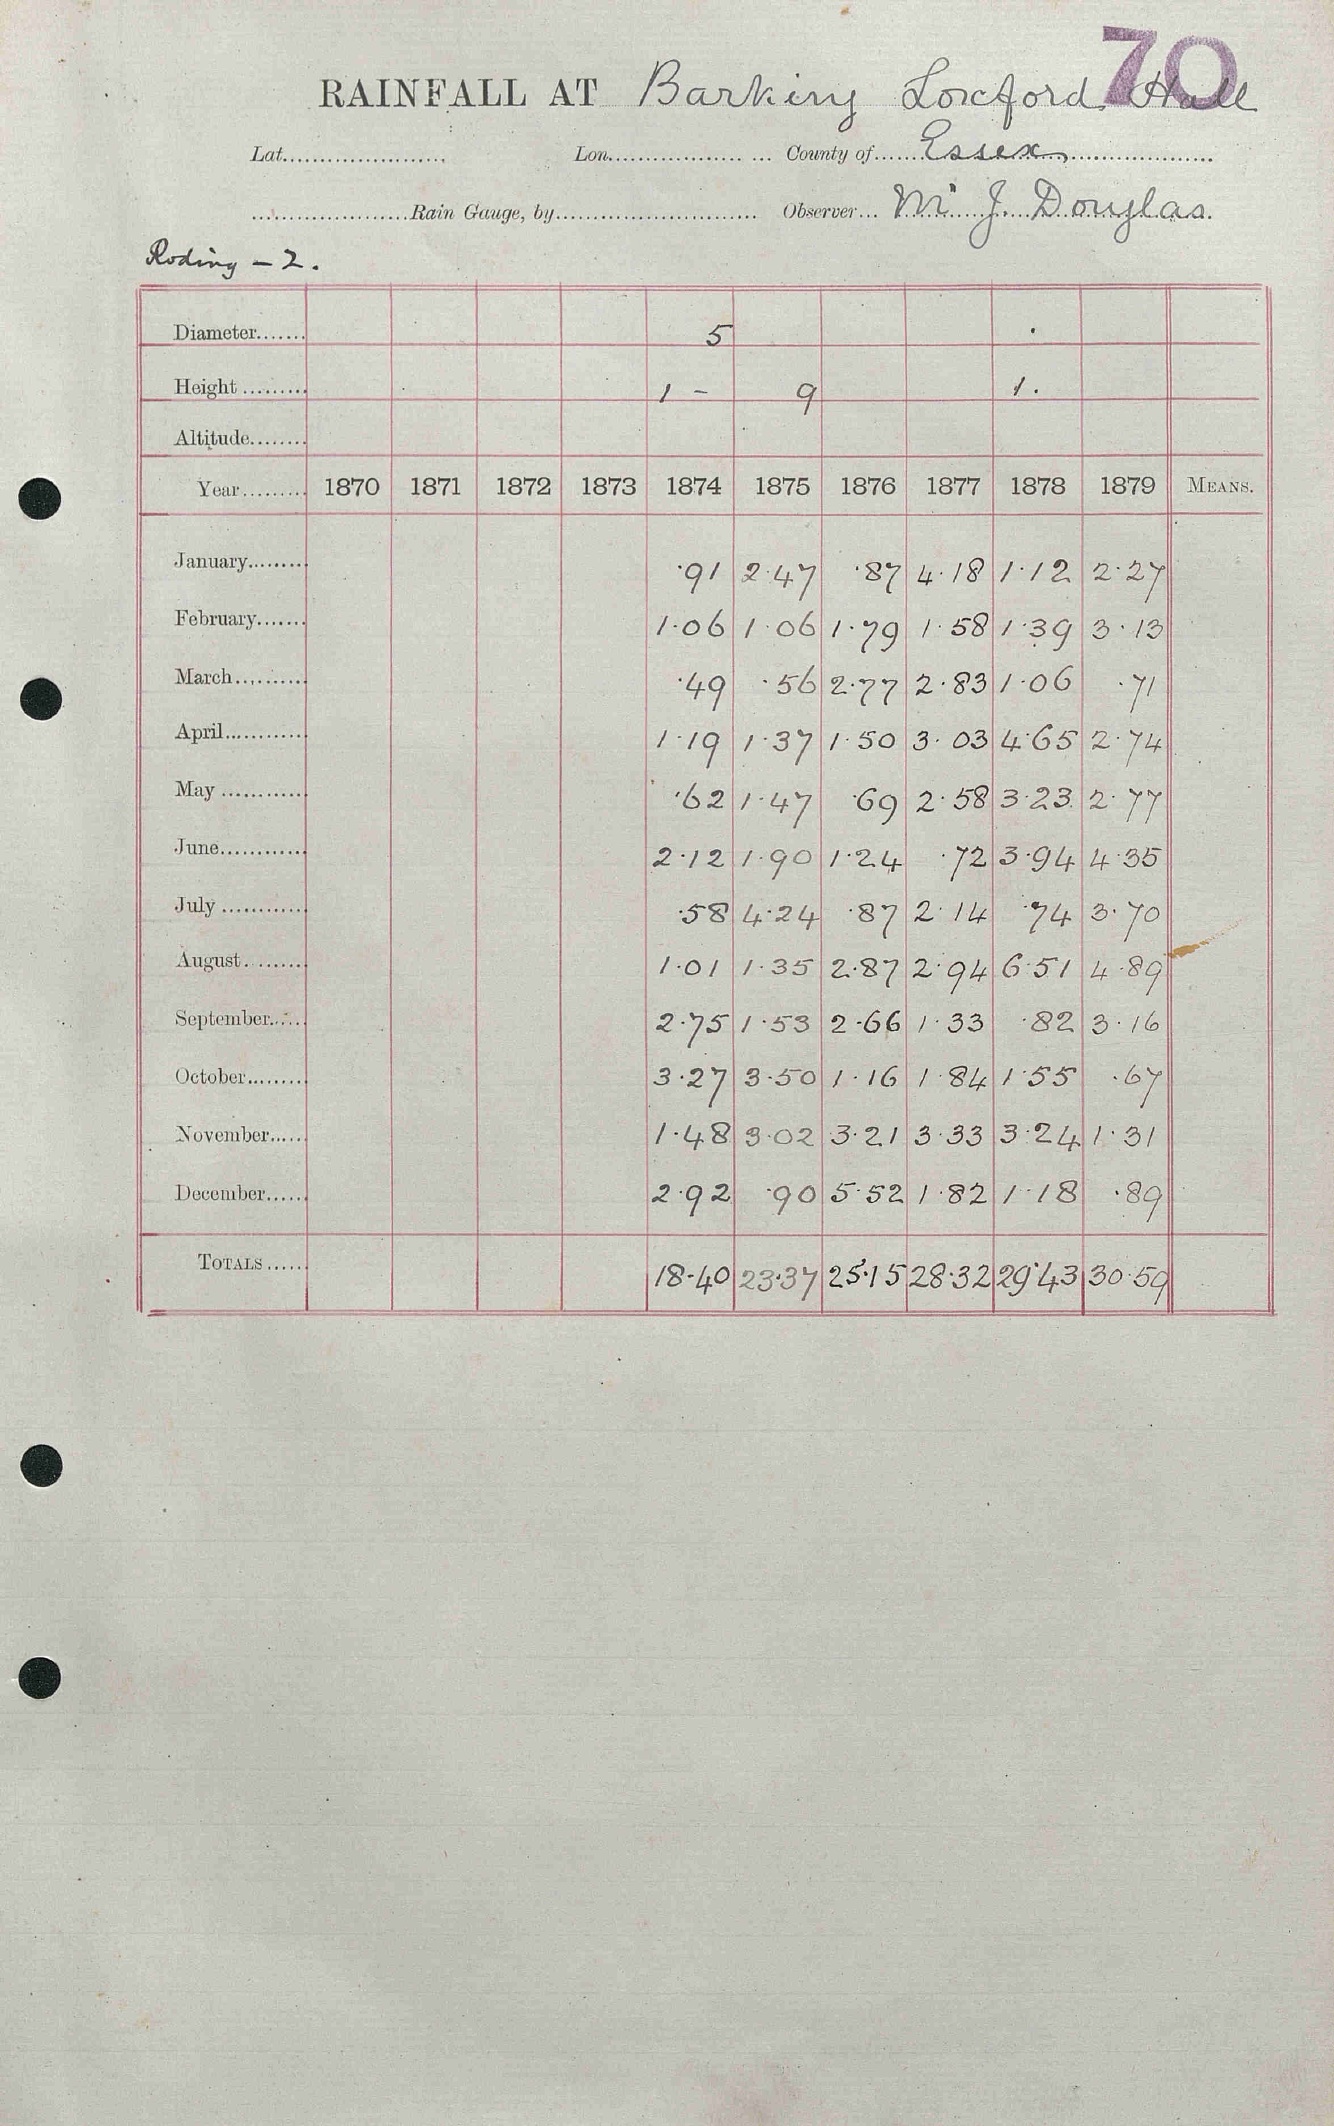 70
RAINFALL AT Barking Loxford Hall
Lat...................... Lon..................... County of.......Essex.......................
.....................Rain Gauge, by........................... Observer... Mr J. Douglas.
Roding - 2.
Diameter....... 5 .
Height ......... 1 - 9 1.
Altitude........
Year......... 1870 1871 1872 1873 1874 1875 1876 1877 1878 1879 MEANS.
January......... ·91 2·47 ·87 4·18 1·12 2·27
February....... 1·06 1·06 1·79 1·58 1·39 3·13
March........... ·49 ·56 2·77 2·83 1·06 ·71
April............ 1·19 1·37 1·50 3·03 4·65 2·74
May ............ ·62 1·47 ·69 2·58 3·23 2·77
June............ 2·12 1·90 1·24 ·72 3·94 4·35
July ............ ·58 4·24 ·87 2·14 ·74 3·70
August......... 1·01 1·35 2·87 2·94 6·51 4·89
September...... 2·75 1·53 2·66 1·33 ·82 3·16
October......... 3·27 3·50 1·16 1·84 1·55 ·67
November...... 1·48 3·02 3·21 3·33 3·24 1·31
December...... 2·92 ·90 5·52 1·82 1·18 ·89
TOTALS...... 18·40 23·37 25·15 28·32 29·43 30·59